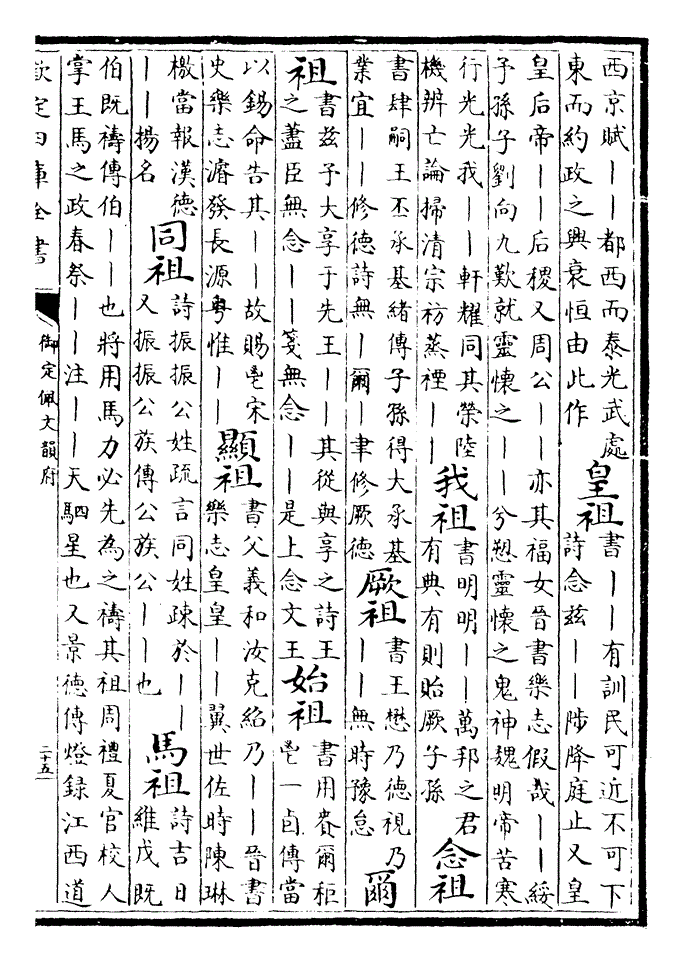 西京賦||都西而泰光武處
東而約政之興衰恒由此作
皇祖
書||有訓民可近不可下
詩念兹||陟降庭止又皇
皇后帝||后稷又周公||亦其福女晉書樂志假哉||綏
予孫子劉向九歎就靈懷之|||兮愬靈懷之鬼神魏明帝苦寒
行光光我||軒耀同其榮陸
機辨亡論掃清宗祊蒸禋||
我祖
書明明||萬邦之君
有典有則貽厥子孫
念祖
書肆嗣王丕承基緒傳子孫得大承基
業宜||修德詩無|爾|聿修厥德
厥祖
書王懋乃德視乃
||無時豫怠
爾
祖
書兹予大享于先王||其從與享之詩王
之藎臣無念||箋無念||是上念文王
始祖
書用賚爾秬
鬯一卣傳當
以錫命告其||故賜鬯宋
史樂志濬發長源粤惟||
顯祖
書父義和汝克紹乃||晉書
樂志皇皇||翼世佐時陳琳
檄當報漢德
||揚名
同祖
詩振振公姓疏言同姓疎於||
又振振公族傳公族公||也
馬祖
詩吉日
維戊既
伯既禱傳伯||也將用馬力必先為之禱其祖周禮夏官校人
掌王馬之政春祭||注||天駟星也又景德傳燈録江西道
欽定四庫全書
御定佩文韻府
二十五